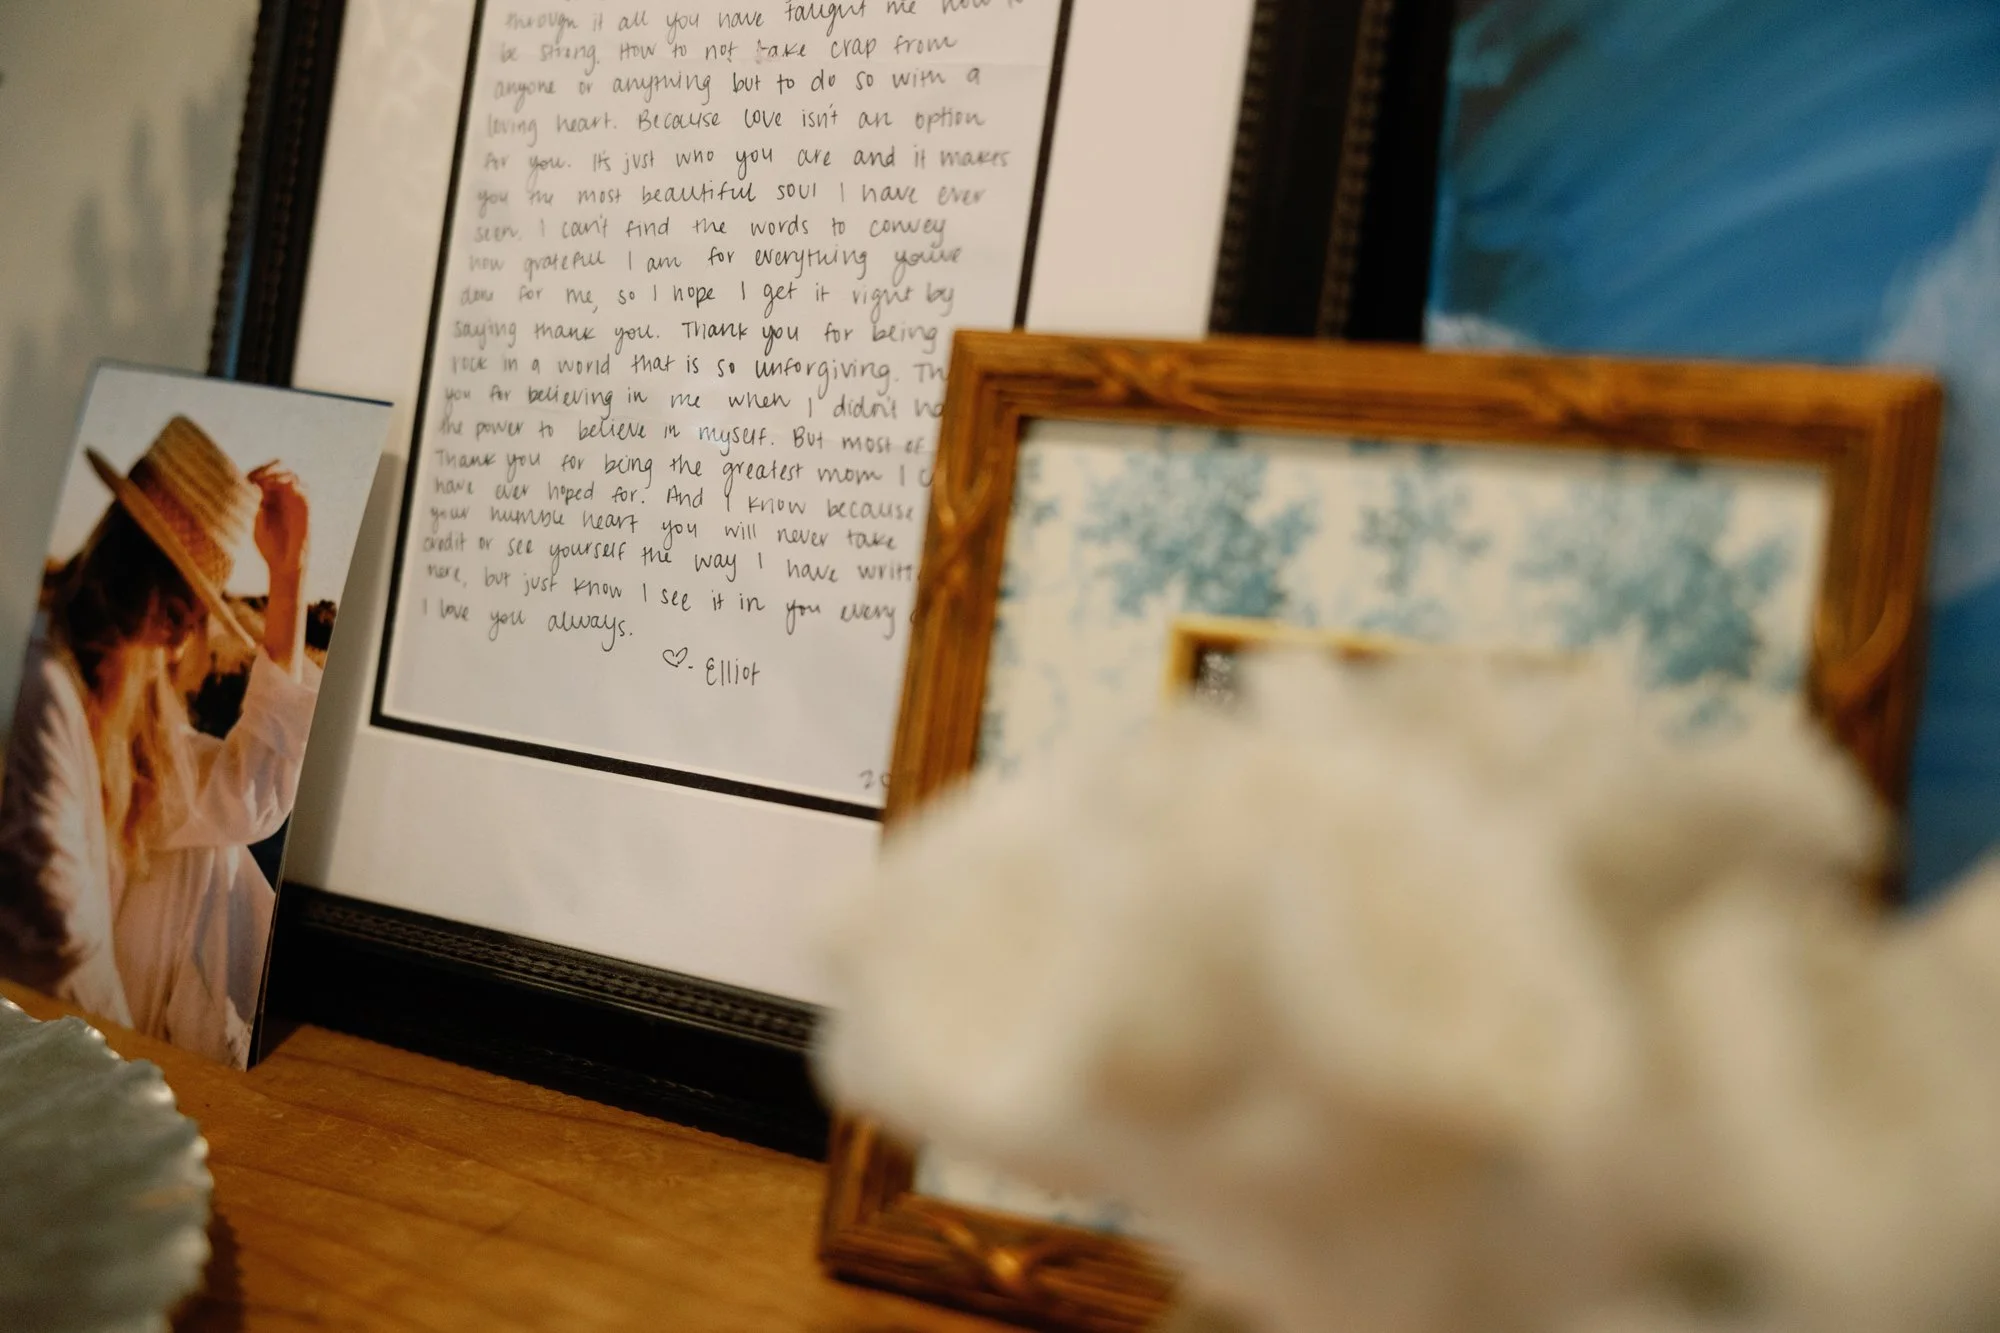 through it all you have taught me how to
be strong. How to not take crap from
anyone or anything but to do so with a
loving heart. Because love isn't an option
for you. It's just who you are and it makes
you the most beautiful soul I have ever
seen. I can't find the words to convey
how grateful I am for everything you've
done for me, so I hope I get it right by
saying thank you. Thank you for being
rock in a world that is so unforgiving. Th
you for believing in me when I didn't ha
the power to believe in myself. But most of
Thank you for being the greatest mom I c
have ever hoped for. And I know because
your humble heart you will never take
credit or see yourself the way I have writt
here, but just know I see it in you every
I love you always.
♡- Elliot
20